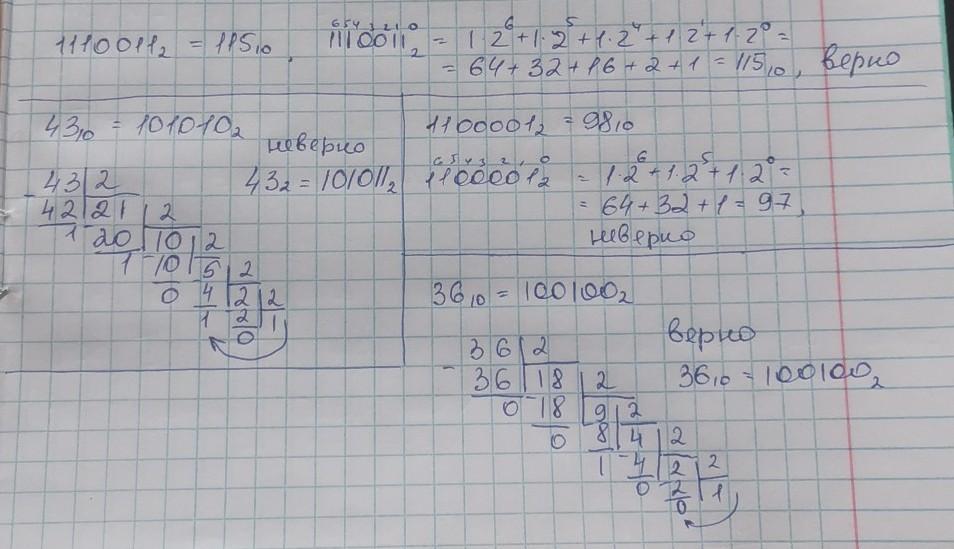 1110011₂ = 115₁₀,
6 5 4 3 2 1 0
1110011₂ = 1·2⁶+1·2⁵+1·2⁴+1·2¹+1·2⁰=
= 64+32+16+2+1 = 115₁₀, верно
43₁₀ = 101010₂
неверно
43 2 43₂ = 101011₂
- 42 21 2
1 20 10 2
1 10 5 2
0 4 2 2
1 2 1
0
1100001₂ = 98₁₀
6 5 4 3 2 1 0
1100001₂ = 1·2⁶+1·2⁵+1·2⁰=
= 64+32+1 = 97,
неверно
36₁₀ = 100100₂
верно
36 2
- 36 18 2 36₁₀ = 100100₂
0 - 18 9 2
0 8 4 2
1 - 4 2 2
0 2 1
0